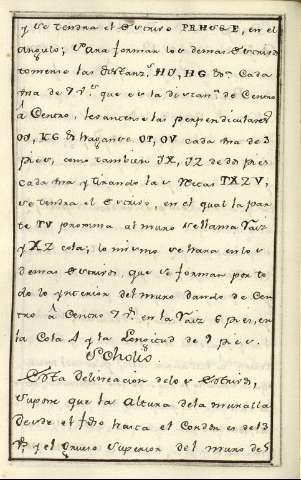 y se tendra el Estrivo PRHUGE, en el
angulo; para formar los demas Estrivos
tomense las distanz.s HU, HG &.a Cada
una de 7 p.s que es la distan.a de Centro
á Centro, levantense las perpendiculares
OS, KG &.a haganse OT, OV cada una de 3
pies, como tambien JX, JZ de dos pies
cada una y tirando las rectas TXZV,
se tendra el Estrivo, en el qual la par
te TV proxima al muro se llama Raiz
y XZ cola; lo mismo se hara en los
demas Estrivos, que se forman por to
do lo ynterior del muro dando de Cen
tro á Centro 7 p.s en la Raiz 6 pies, en
la Cola 4 y la Longitud de 9 pies.
Scholio.
Esta delineacion de los Estrivos,
supone que la altura de la muralla
desde el f.do hasta el Cordon es de 3
p.s y el grueso superior del muro de 5